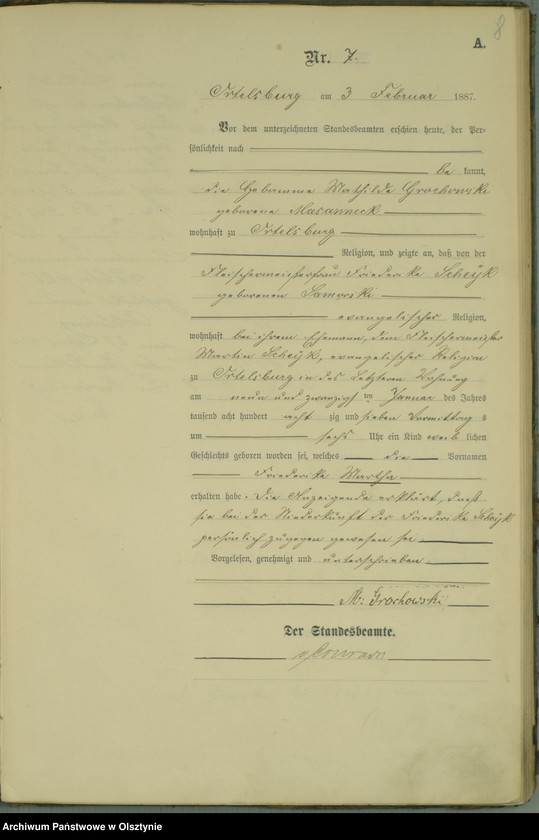 8
A.
Nr. 7.
Ortelsburg am 3 Februar 1887.
Vor dem unterzeichneten Standesbeamten erschien heute, der Per-
sönlichkeit nach
be kannt,
die Hebamme Mathilde Grochowski
geborene Masanneck
wohnhaft zu Ortelsburg
Religion, und zeigte an, daß von der
Fleischermeisterfrau Friederike Scheÿk
geborenen
evangelischer Religion,
wohnhaft bei ihrem Ehemann, dem Fleischermeister
Martin Scheÿk, evangelischer Religion
zu Ortelsburg in des Letzteren Wohnung
am neun und zwanzigsten Januar des Jahres
tausend acht hundert acht zig und sieben Vormittags
um sechs Uhr ein Kind weib lichen
Geschlechts geboren worden sei, welches die Vornamen
Friederike Martha
erhalten habe. Die Anzeigende erklärt, dass
sie bei der Niederkunft der Friederike Scheÿk
persönlich zugegen gewesen sei
Vorgelesen, genehmigt und unterschrieben
M: Grochowski
Der Standesbeamte.
Archiwum Państwowe w Olsztynie